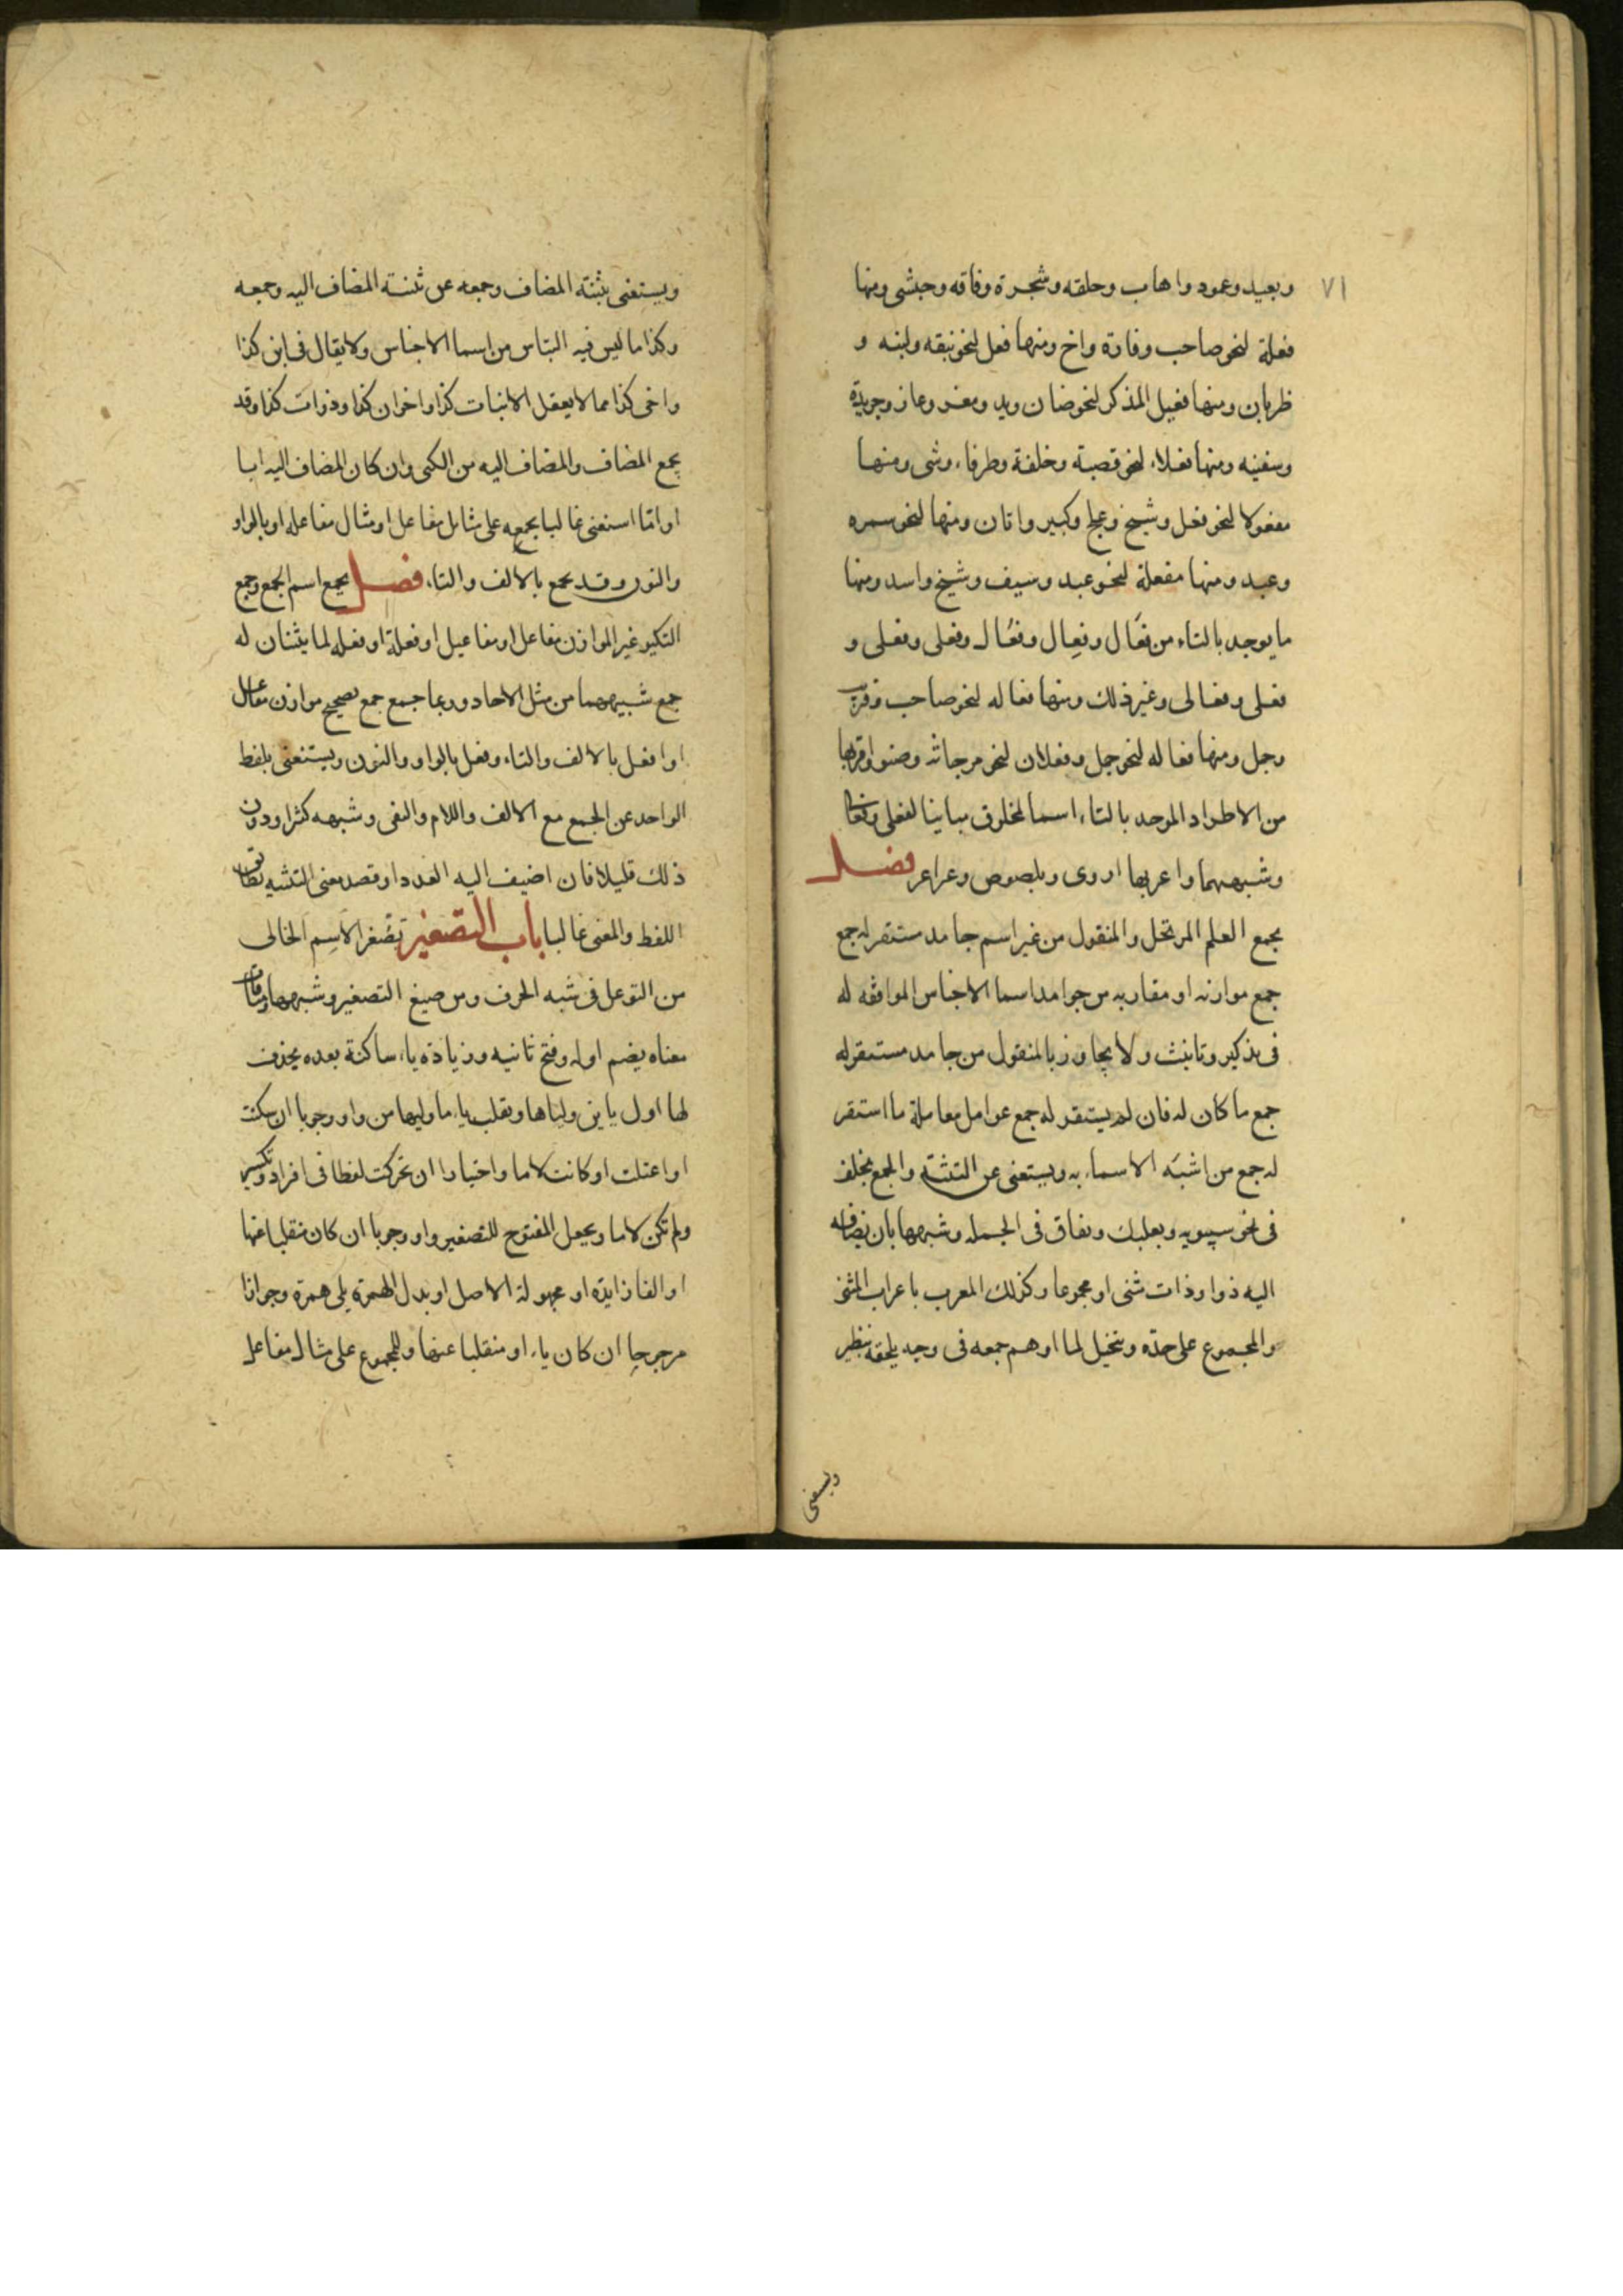 ٧١
وبعيد وعمود واهاب وحلقه وشجرة وفاقه وحبشى ومنها
فعلة لنحو صاحب وفارة واخ ومنها فعل لنحو نبقه ولبنه و
ظربان ومنها فعيل المذكر لنحو ضان ويد ومعز وعاز وجريدة
وسفينه ومنها فعلاء لنحو قصبة وخلفة وطرفاء وشى ومنها
مفعولا لنحو فعل وشيخ وعلج وكبير واتان ومنها لنحو سمره
وعبد ومنها مفعلة لنحو عبد وسيف وشيخ واسد ومنها
ما يوجد بالتاء من فعَّال وفِعال وفعُال وفعلى وفعلى و
فعلى وفعالى وغير ذلك ومنها فعاله لنحو صاحب وقريب
وجمل ومنها فعاله لنحو جمل وفعلان لنحو مرجانه وصنو واقربها
من الاطراد الموحد بالتاء اسما لمخلوق مباينا لفعلى وفعال
وشبههما واعربها اروى وبلصوص وعراعر فصل
يجمع العلم المرتجل والمنقول من غير اسم جامد مستقر له جمع
جمع موازنه او مقاربه من جوامد اسما الاجناس الموافقه له
فى تذكير وتانيث ولا يجاوز بالمنقول من جامد مستقر له
جمع ما كان له فان لم يستقر له جمع عومل معاملة ما استقر
له جمع من اشبَه الاسماء به ويستغنى عن التثنية والجمع بخلف
فى نحو سيبويه وبعلبك وبفاق فى الجمله وشبهها بان يضاف
اليه ذوا وذات مثنى او مجموعا وكذلك المعرب باعراب المثنى
والمجموع على حدّه ويتخيل لما اوهم جمعه فى وجه يلحقه بنظير
ويستغنى
ويستغنى بتثنية المضاف وجمعه عن تثنية المضاف اليه وجمعه
وكذا ما ليس فيه التباس من اسما الاجناس ولا يقال فى ابن كذا
واخى كذا مما لا يعقل الا بنات كذا واخوان كذا وذوات كذا وقد
يجمع المضاف والمضاف اليه من الكنى وان كان المضاف اليه ابا
او امّا استغنى غالبا بجمعه على مثال مفاعل او مثال مفاعله او بالواو
والنون وقد يجمع بالالف والتاء، فصل يجمع اسم الجمع وجمع
التكسير غير الموازن مفاعل او مفاعيل او فعلة او فعله لما يثنان له
جمع شبيههما من مثل الاحاد وربما جمع جمع تصحيح موازن مفاعل
او افعل بالالف والتاء وفعل بالواو والنون ويستغنى بلفظ
الواحد عن الجمع مع الالف واللام والنفى وشبهه كثرا ودون
ذلك قليلا فان اضيف اليه العدد او قصد معنى التثنيه تطابق
اللفظ والمعنى غالبا باب التصغير تصُغر الاسِم الخالى
من التوغل فى شبه الحرف ومن صيغ التصغير وشبهها ومنافاة
معناه بضم اوله وفتح ثانيه وزيادة ياء ساكنة بعده يحذف
لها اول ياين ولياها وتقلب ياء ما وليها من واو وجوبا ان سكنت
او اعتلت او كانت لاما واختيارا ان تحركت لفظا فى افراد وتكسير
ولم تكن لاما ويجعل المفتوح للتصغير واو وجوبا ان كان منقلبا عنها
او الفا زايدة او مجهولة الاصل او بدل الهمزه يلى همزة وجوازا
مرجوحا ان كان ياء او منقلبا عنها وللمجموع على مثال مفاعل